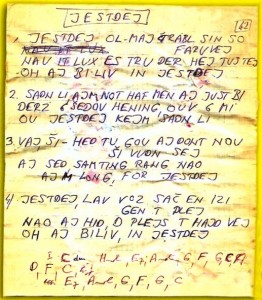 JESTDEJ
62
1. JESTDEJ OL-MAJ TRABL SIN SO
FARUVEJ
NAU IT LUX ES TRU DER HEJ TU STEJ
OH AJ BILIV IN JESTDEJ
2. SADN LI AJM NOT HAF MEN AJ JUST BI
DERZ ŠEDOV HENING OUV G MI
OU JESTDEJ KEJM SADN LI
3. VAJ ŠI- HED TU GOU AJ DONT NOU
ŠI VUDN SEJ
AJ SED SAMTING RANG NAO
AJ M LONG, FOR JESTDEJ
4. JESTDEJ LAV VOZ SAČ EN IZI
GEN T PLEJ
NAO AJ HID O PLEJS T HAJD VEJ
OH AJ BILÍV, IN JESTDEJ